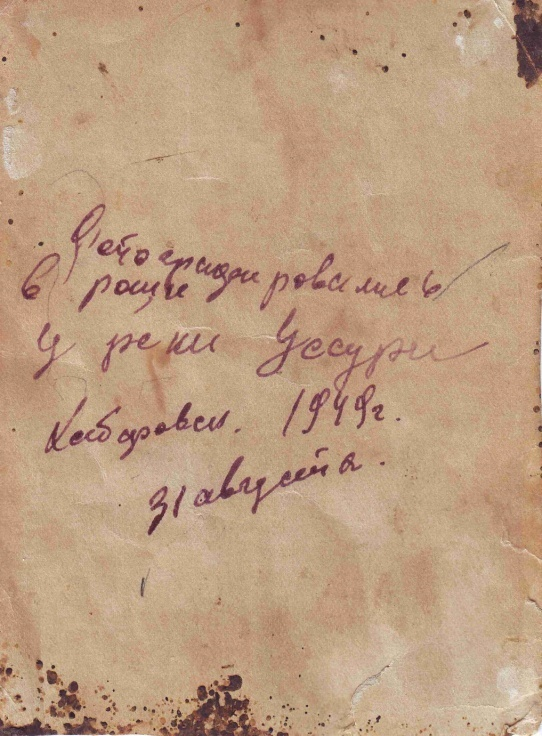 Фотографировались
в роще
у реки Уссури
Хабаровск. 1949г.
31 августа.